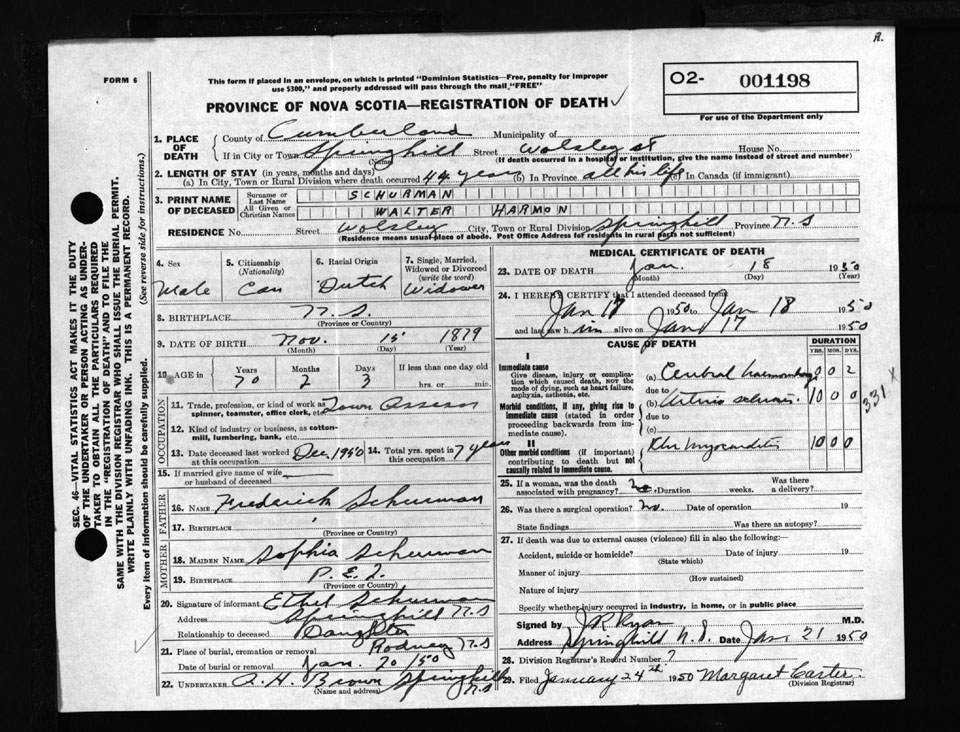 R.
FORM 6
This form if placed in an envelope, on which is printed "Dominion Statistics—Free, penalty for improper
use $300," and properly addressed will pass through the mail "FREE"
O2- 001198
For use of the Department only
PROVINCE OF NOVA SCOTIA—REGISTRATION OF DEATH ✓
1. PLACE OF DEATH
County of Cumberland Municipality of
If in City or Town Springhill Street Wolsley St House No.
(Name) (If death occurred in a hospital or institution, give the name instead of street and number)
2. LENGTH OF STAY (in years, months and days)
(a) In City, Town or Rural Division where death occurred 44 years (b) In Province all his life (c) In Canada (if immigrant)
3. PRINT NAME OF DECEASED
Surname or Last Name SCHURMAN
All Given or Christian Names WALTER HARMON
RESIDENCE No. Street Wolsley City, Town or Rural Division Springhill Province N.S
(Residence means usual place of abode. Post Office Address for residents in rural parts not sufficient)
4. Sex
Male
5. Citizenship
(Nationality)
Can
6. Racial Origin
Dutch
7. Single, Married,
Widowed or Divorced
(write the word)
Widower
8. BIRTHPLACE N.S.
(Province or Country)
9. DATE OF BIRTH Nov. 15 1879
(Month) (Day) (Year)
10. AGE in
Years Months Days If less than one day old
70 2 3 hrs. or min.
OCCUPATION
11. Trade, profession, or kind of work as
spinner, teamster, office clerk, etc. Town Assessor
12. Kind of industry or business, as cotton-
mill, lumbering, bank, etc.
13. Date deceased last worked
at this occupation Dec. 1950
14. Total yrs. spent in
this occupation 7 years
15. If married give name of wife
or husband of deceased
FATHER
16. NAME Frederick Schurman
17. BIRTHPLACE
(Province or Country)
MOTHER
18. MAIDEN NAME Sophia Schurman
19. BIRTHPLACE P.E.I.
(Province or Country)
20. Signature of informant Ethel Schurman
Address Springhill N.S
Relationship to deceased Daughter
21. Place of burial, cremation or removal Rodney N.S
Date of burial or removal Jan. 20 /50
22. UNDERTAKER A.H. Brown Springhill
N.S
(Name and address)
MEDICAL CERTIFICATE OF DEATH
23. DATE OF DEATH Jan. 18 1950
(Month) (Day) (Year)
24. I HEREBY CERTIFY that I attended deceased from
Jan 17 1950 to Jan 18 1950
and last saw him alive on Jan 17 1950
CAUSE OF DEATH
DURATION
YRS. MOS. DYS.
I
Immediate cause
Give disease, injury or complica-
tion which caused death, not the
mode of dying, such as heart failure,
asphyxia, asthenia, etc.
(a) Cerebral haemorrhage 0 0 2
due to
Morbid conditions, if any, giving rise to
immediate cause (stated in order
proceeding backwards from im-
mediate cause).
(b) Arterio sclerosis. 10 0 0
due to
(c)
331 x
II
Other morbid conditions (if important)
contributing to death but not
causally related to immediate cause.
Chr myocarditis 10 0 0
25. If a woman, was the death
associated with pregnancy? no. Duration weeks. Was there
a delivery?
26. Was there a surgical operation? no. Date of operation 19
State findings Was there an autopsy?
27. If death was due to external causes (violence) fill in also the following:
Accident, suicide or homicide? Date of injury 19
(State which)
Manner of injury
(How sustained)
Nature of injury
Specify whether injury occurred in industry, in home, or in public place
Signed by J R Ryan M.D.
Address Springhill N.S. Date Jan 21 1950
28. Division Registrar's Record Number 7
29. Filed January 24th 1950 Margaret Carter.
(Division Registrar)
SEC. 46—VITAL STATISTICS ACT MAKES IT THE DUTY
OF THE UNDERTAKER OR PERSON ACTING AS UNDER-
TAKER TO OBTAIN ALL THE PARTICULARS REQUIRED
IN THE "REGISTRATION OF DEATH" AND TO FILE THE
SAME WITH THE DIVISION REGISTRAR WHO SHALL ISSUE THE BURIAL PERMIT.
WRITE PLAINLY WITH UNFADING INK. THIS IS A PERMANENT RECORD.
Every item of information should be carefully supplied. (See reverse side for instructions.)